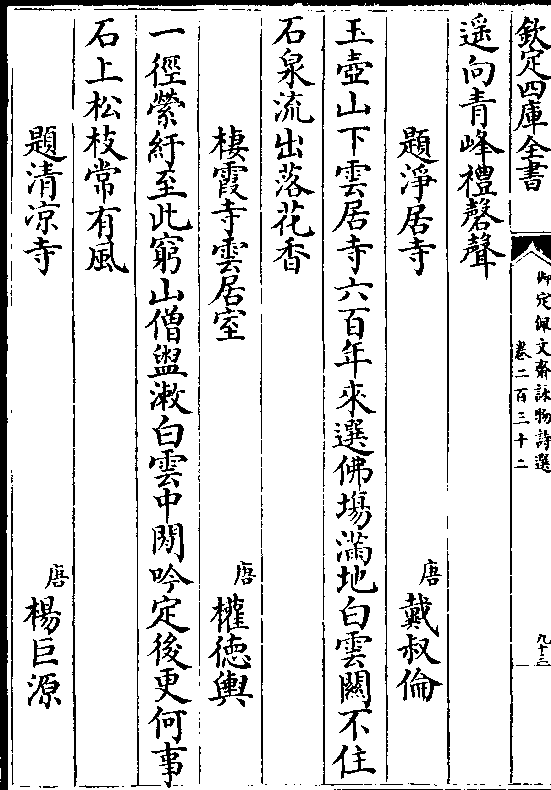 欽定四庫全書
御定佩文齋詠物詩選
卷二百三十二
九十三
遥向青峰禮磬聲
題淨居寺 唐 戴叔倫
玉壺山下雲居寺六百年來選佛場滿地白雲關不住
石泉流出落花香
棲霞寺雲居室 唐 權德輿
一徑縈紆至此窮山僧盥漱白雲中閑吟定後更何事
石上松枝常有風
題清凉寺 唐 楊巨源